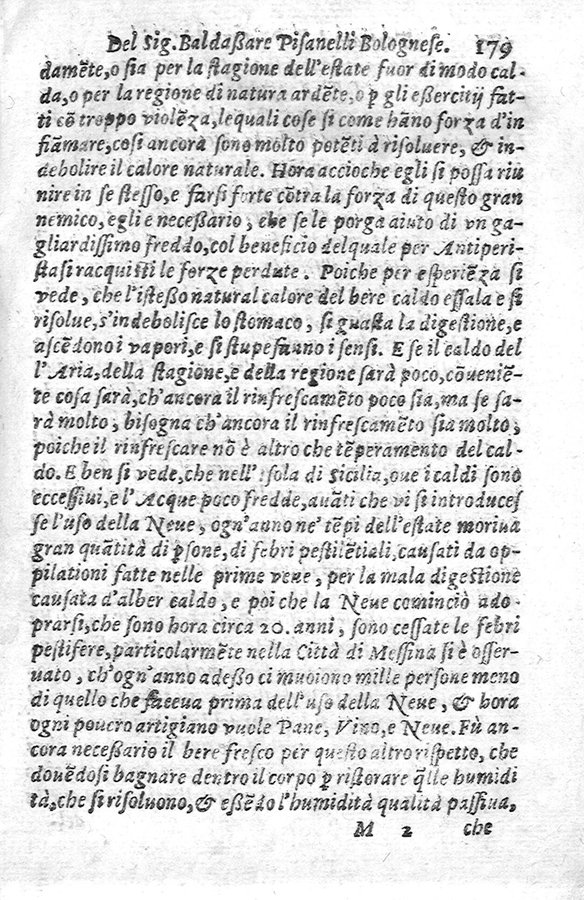 Del Sig. Baldaßare Pisanelli Bolognese. 179
damẽte, o sia per la stagione dell'estate fuor di modo cal-
da, o per la regione di natura ardẽte, o ꝑ gli eßercitÿ fat-
ti cõ troppo violẽza, lequali cose si come hãno forza d'in
fiãmare, cosi ancora sono molto potẽti à risoluere, & in-
debolire il calore naturale. Hora accioche egli si possa riu
nire in se stesso, e farsi forte cõtra la forza di questo gran
nemico, egli e neceßario, che se le porga aiuto di vn ga-
gliardissimo freddo, col beneficio del quale per Antiperi-
stasi racquisti le forze perdute. Poiche per esperiẽza si
vede, che l'isteßo natural calore del bere caldo essala e si
risolue, s'indebolisce lo stomaco, si guasta la digestione, e
ascẽdono i vapori, e si stupefanno i sensi. E se il caldo del
l'Aria, della stagione, e della regione sarà poco, cõueniẽ-
te cosa sarà, ch'ancora il rinfrescamẽto poco sia, ma se sa-
rà molto, bisogna ch'ancora il rinfrescamẽto sia molto,
poiche il rinfrescare nõ è altro che tẽperamento del cal-
do. E ben si vede, che nell'Isola di Sicilia, oue i caldi sono
eccessiui, e l'Acque poco fredde, auãti che vi si introduces
se l'uso della Neue, ogn'anno ne' tẽpi dell'estate moriua
gran quãtità di ꝑsone, di febri pestilẽtiali, causati da op-
pilationi fatte nelle prime vene, per la mala digestione
causata d'alber caldo, e poi che la Neue cominciò ado-
prarsi, che sono hora circa 20. anni, sono cessate le febri
pestifere, particolarmẽte nella Città di Messina si è osser-
uato, ch'ogn'anno adeßo ci muoiono mille persone meno
di quello che faceua prima dell'uso della Neue, & hora
ogni pouero artigiano vuole Pane, Vino, e Neue. Fù an-
cora neceßario il bere fresco per questo altro rispetto, che
douẽdosi bagnare dentro il corpo ꝑ ristorare q̃lle humidi
tà, che si risoluono, & eßẽdo l'humidità qualità passiua,
M 2 che